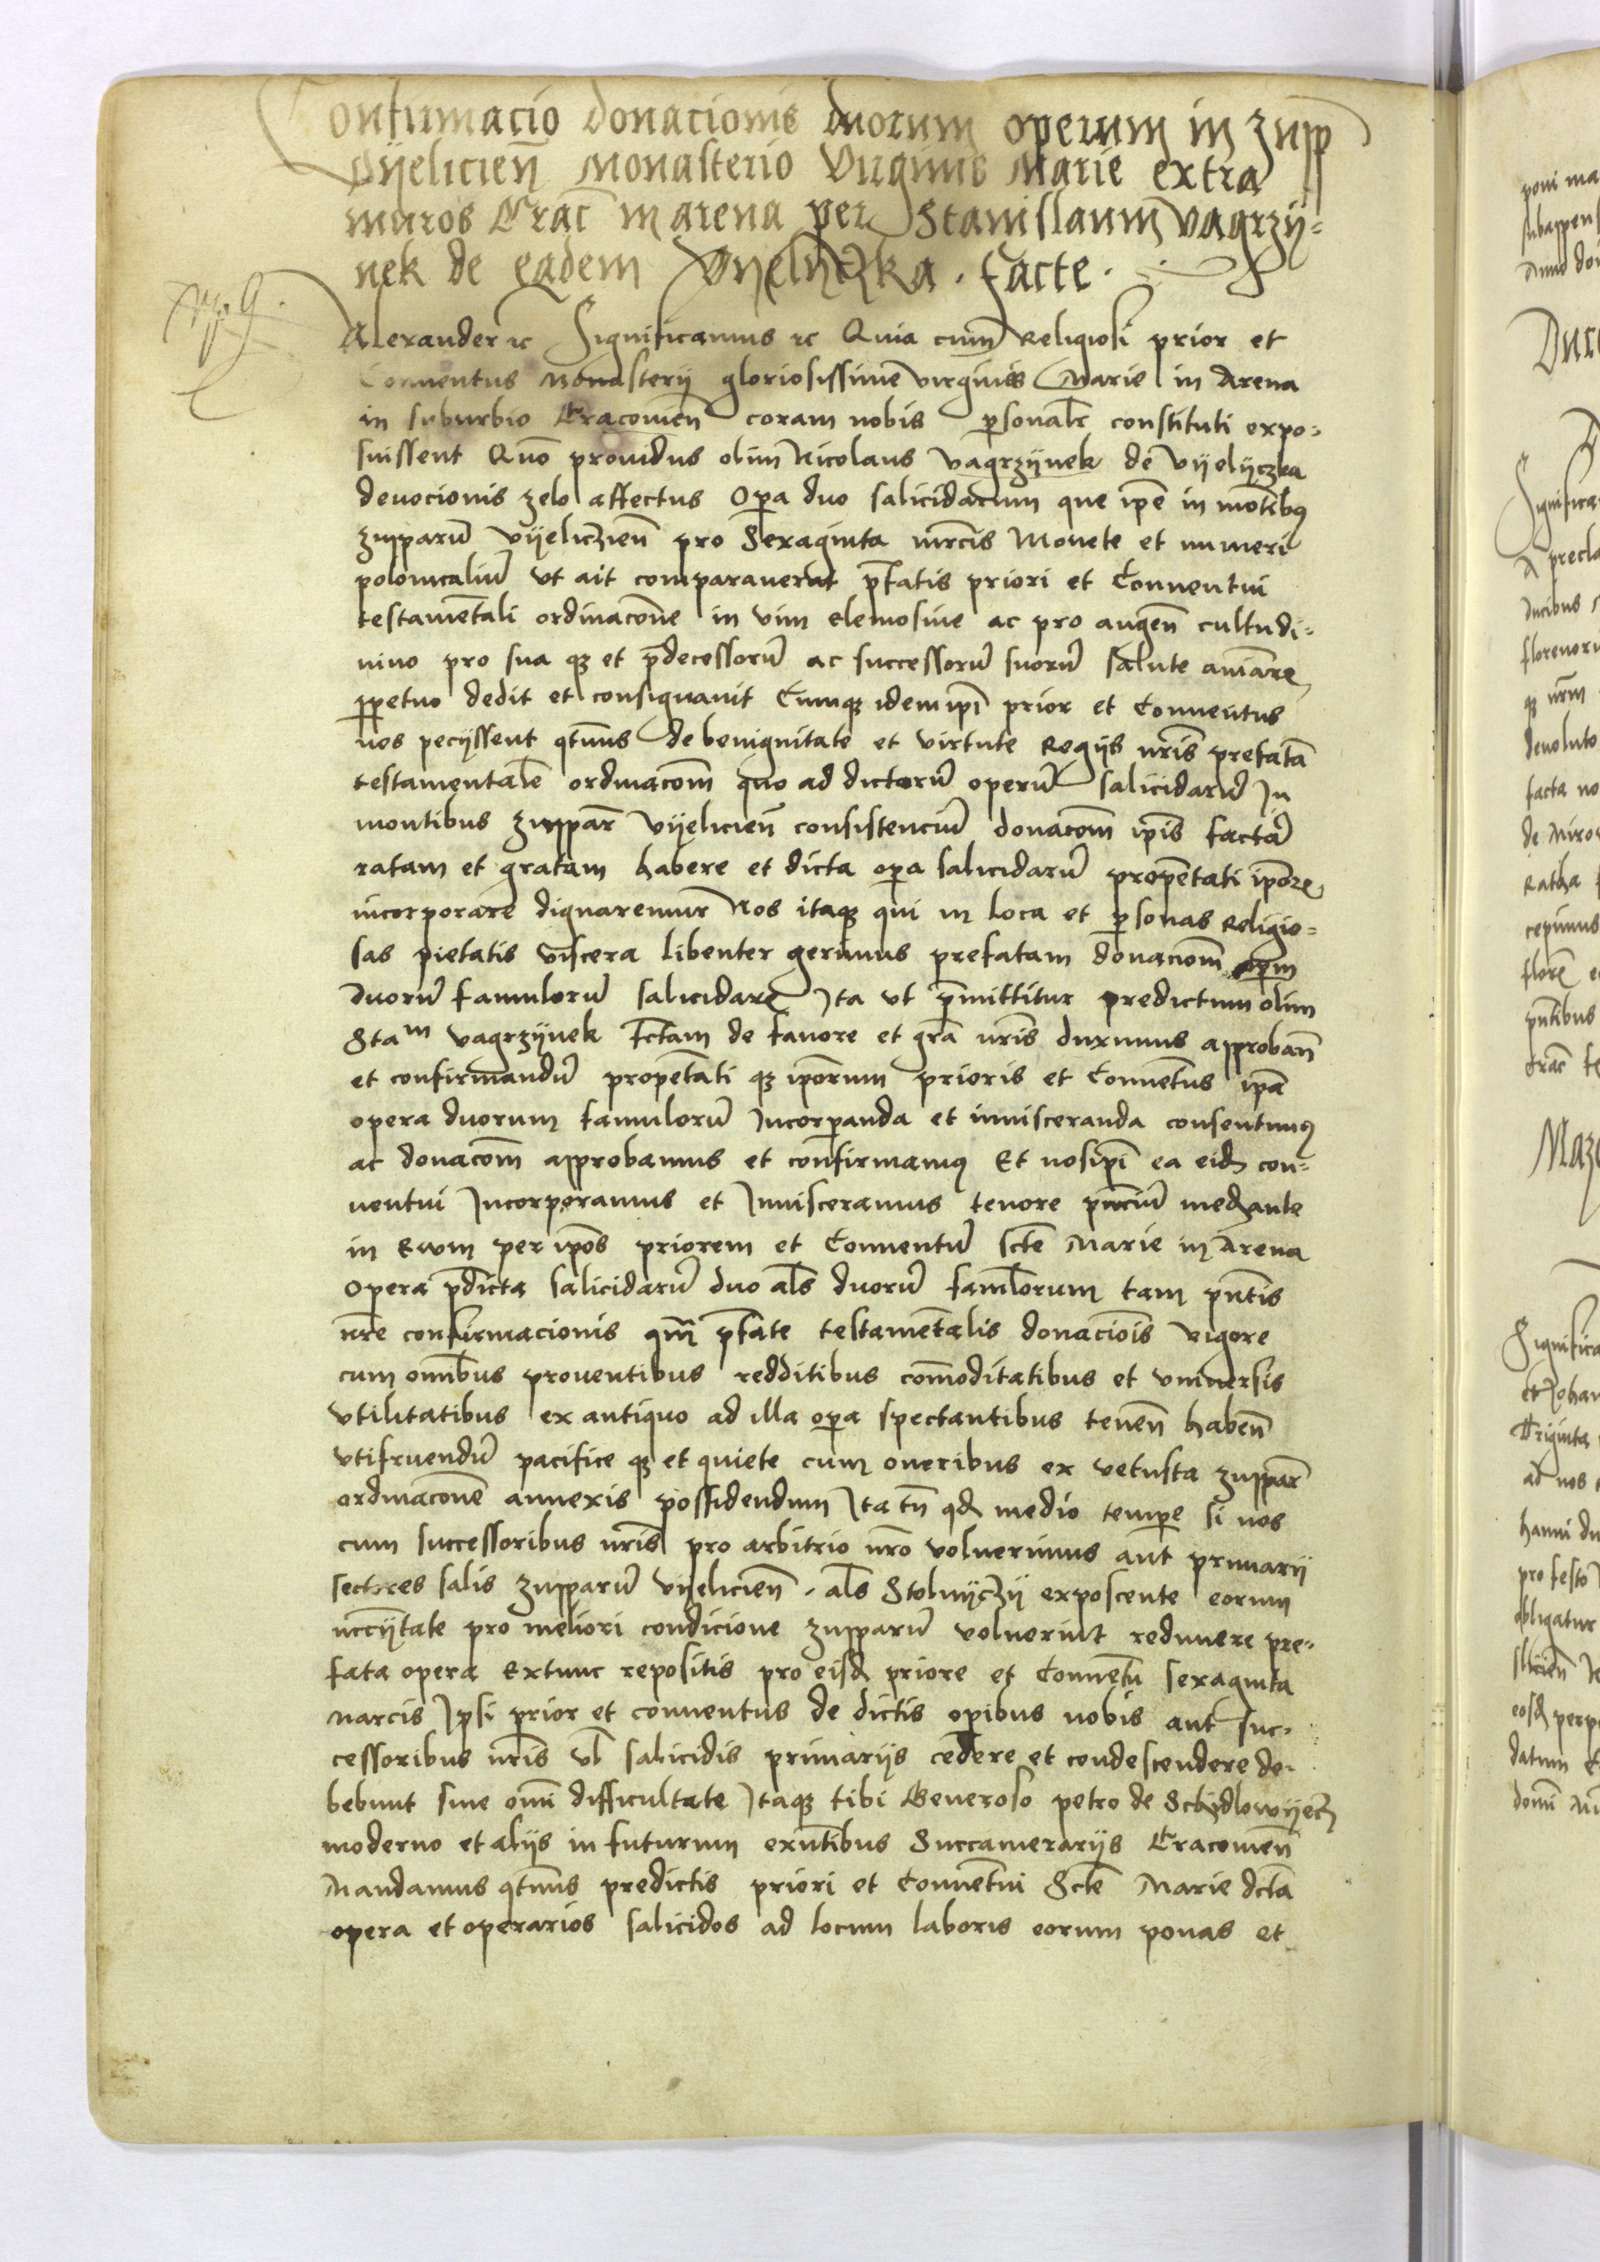 Confirmacio donacionis duorum operum in zupp
Vyelicien Monasterio Virginis Marie extra
muros Crac in arena per Stanislaum Vagrzy=
nek de eadem Vyelyczka . facte .
Alexander rc Significamus rc Quia cum Religiosi prior et
Conuentus Monasterij gloriosissime virginis Marie in Arena
in suburbio Cracouien coram nobis psonalr constituti expo=
suissent Quo prouidus olim Nicolaus Vagrzynek de Vyelyczka
deuocionis zelo affectus Opa duo salicidarum que ipe in motibus
zupparu vyeliczien pro Sexaginta mrcis Monete et numeri
polonicaliu vt ait comparauerat pfatis priori et Conuentui
testametali ordinacone in vim elemosine ac pro augen cultu di=
uino pro sua qz et pdecessoru ac successoru suoru salute aiare
ppetuo dedit et consignauit Cumqz idem ipi prior et Conuentus
nos pecijssent qtnus de benignitate et virtute Regijs nris prefata
testamentale ordinacom quo ad dictoru operu salicidaru In
montibus zuppar vyelicien consistenciu donacom ipis facta
ratam et gratam habere et dicta opa salicidaru propetati ipor
incorporare dignaremur Nos itaqz qui in loca et psonas Religio=
sas pietatis viscera libenter gerimus prefatam donaciom opm
duoru famuloru salicidar Ita vt pmittitur predictum olim
Stam vagrzynek fctam de fauore et gra nris duximus approban
et confirmandu propetati qz iporum prioris et Conuetus ipa
opera duorum famuloru Incorpanda et inuisceranda consentimus
ac donacom approbamus et confirmamus Et nosipi ea eidz con=
uentui Incorporamus et Inuisceramus tenore pnciu medzante
in Ewm per ipos priorem et Conuentu scte Marie in Arena
Opera pdicta salicidaru duo als duoru famlorum tam pntis
nre confirmacionis qm pfate testametalis donaciois vigore
cum omibus prouentibus redditibus comoditatibus et vniuersis
vtilitatibus ex antiquo ad illa opa spectantibus tenen haben
vtifruendu pacifice qz et quiete cum oneribus ex vetusta zuppar
ordinacone annexis possidendum Ita tn qdz medio tempe si nos
cum successoribus nris pro arbitrio nro voluerimus aut primarij
sectores salis zupparu vyelicien . als Stolnyczy exposcente eorum
nccijtate pro meliori condicione zupparu voluerint redimere pre=
fata opera Extunc repositis pro eisdz priore et Conuetu sexaginta
marcis Ipsi prior et conuentus de dictis opibus nobis aut suc=
cessoribus nris vl salicidis primarijs cedere et condescendere de=
bebunt sine omi difficultate Itaqz tibi Generoso petro de Schydlowyecz
moderno et alijs in futurum exntibus Succamerarijs Cracouien
Mandamus qtnus predictis priori et Conuetui Scte Marie dcta
opera et operarios salicidos ad locum laboris eorum ponas et